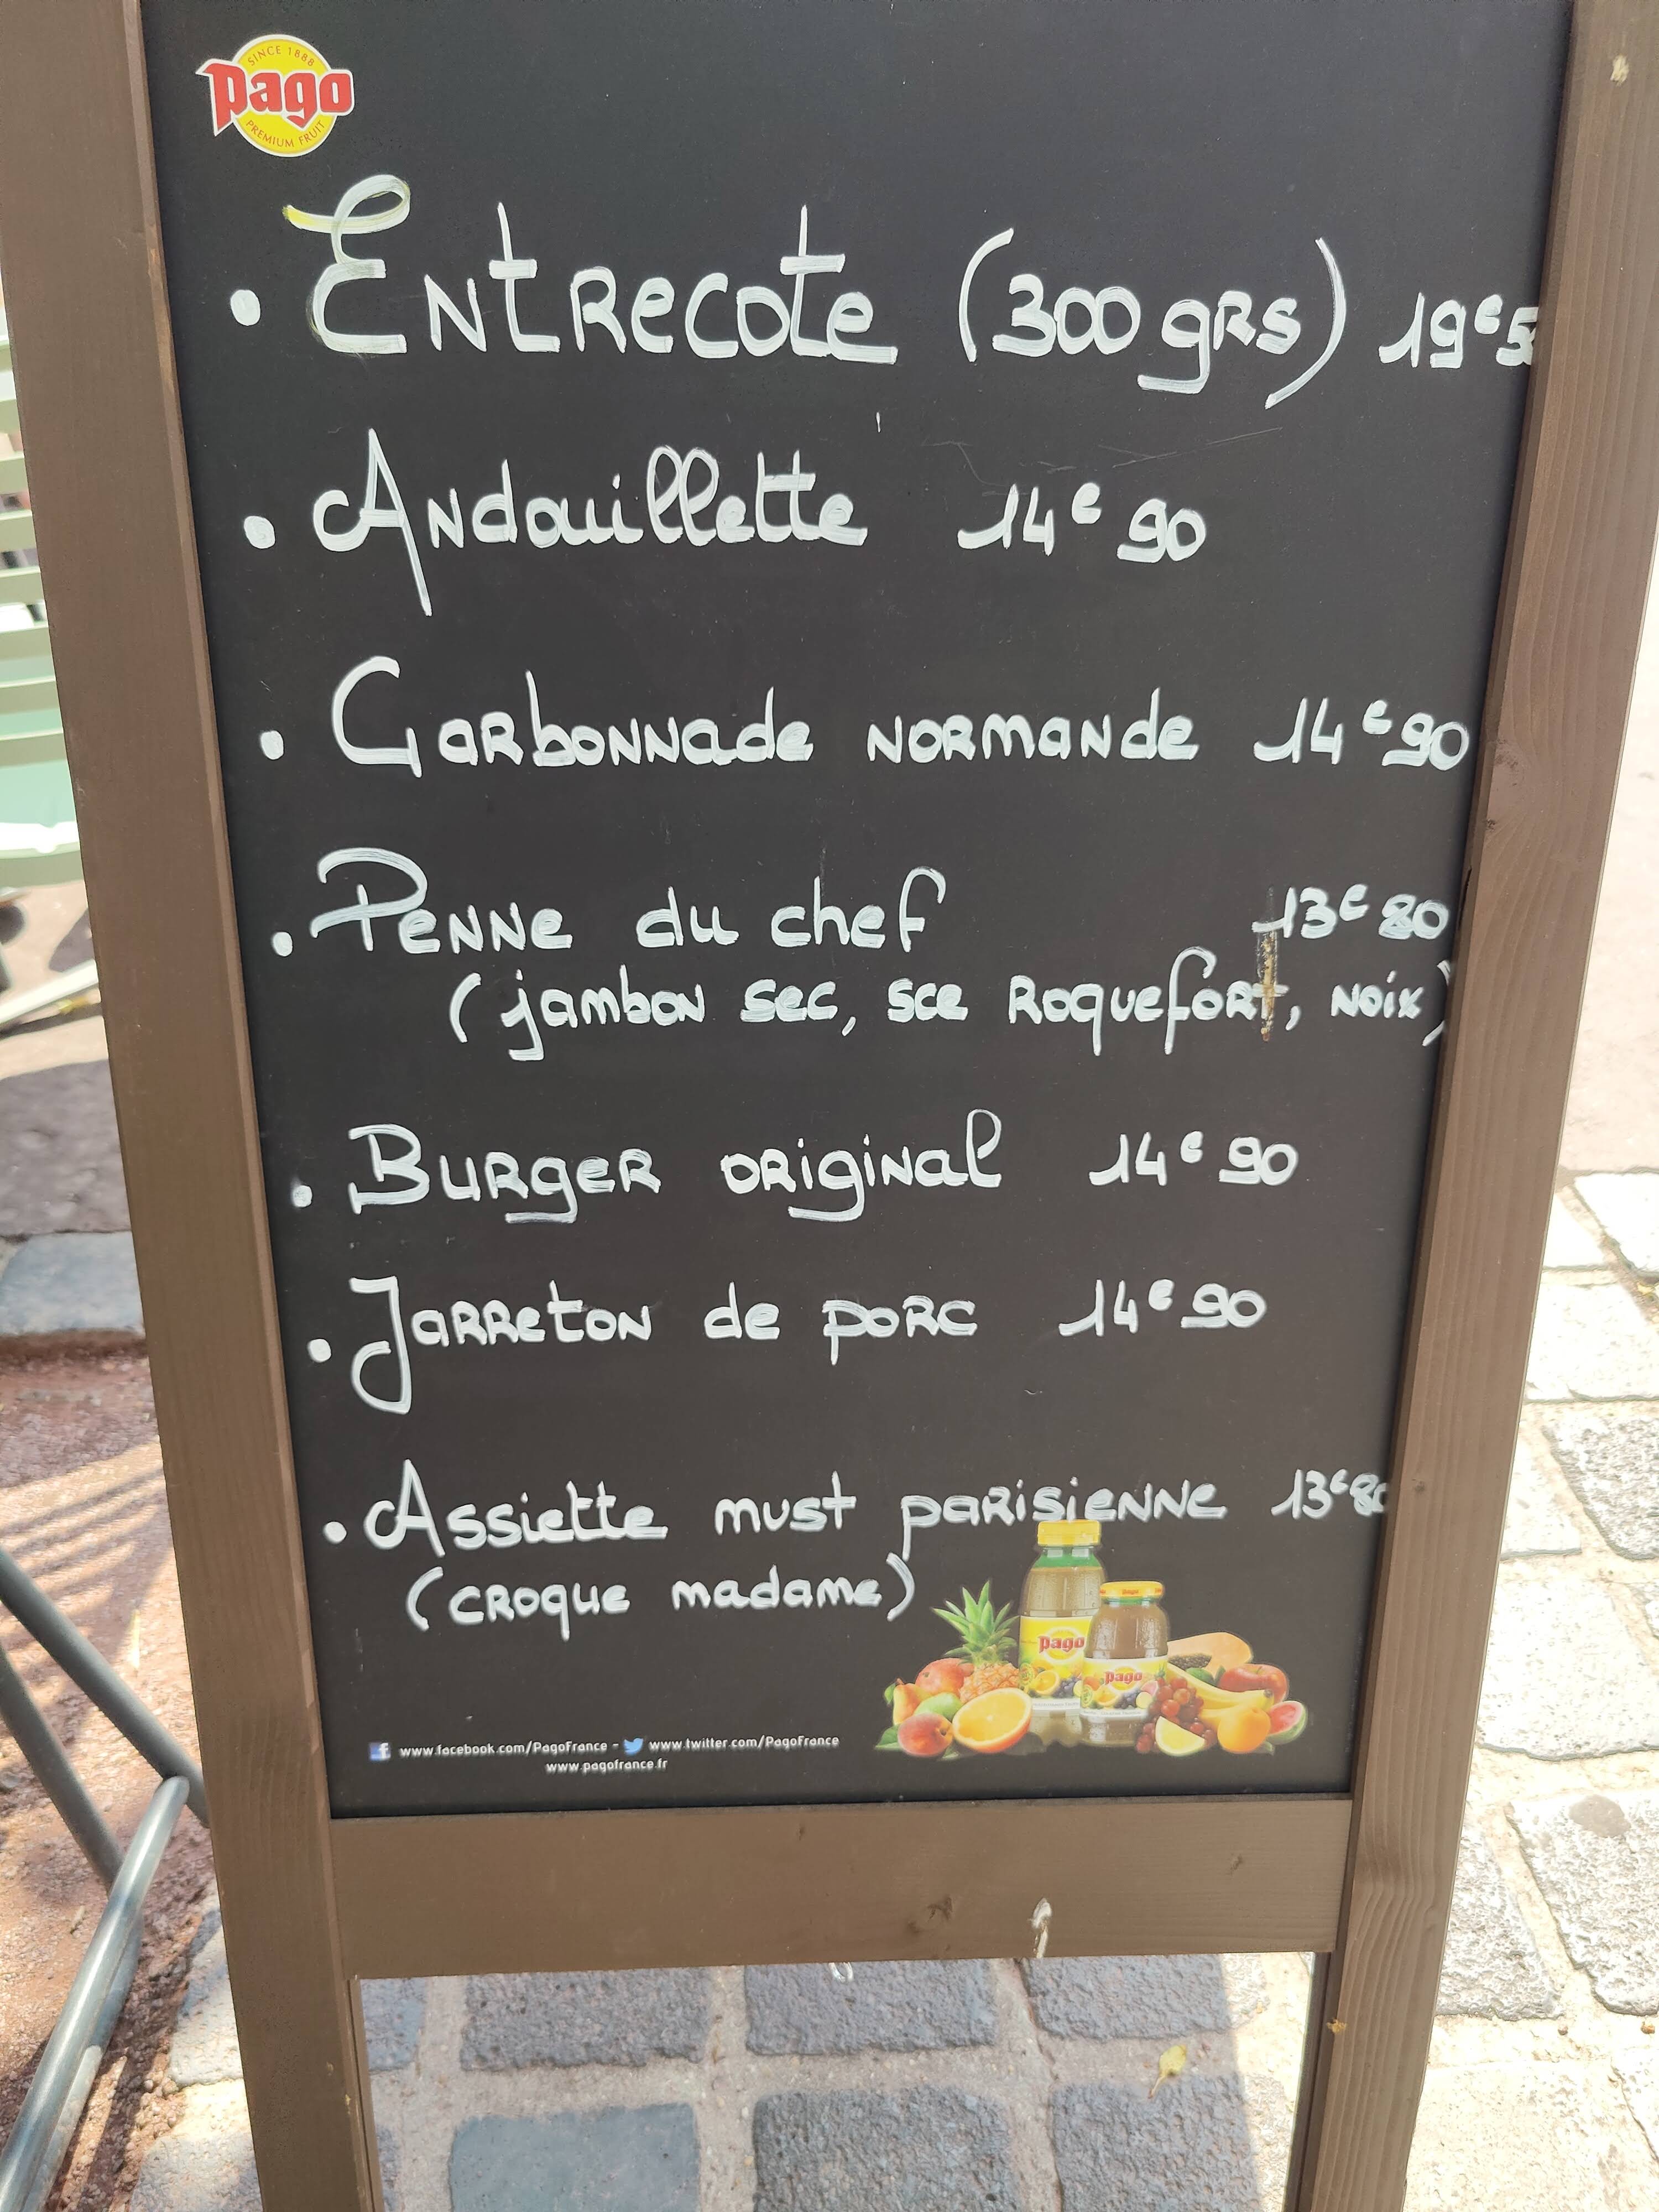 SINCE 1888
pago
PREMIUM FRUIT
• Entrecote (300 grs) 19€5
• Andouillette 14€90
• Carbonnade normande 14€90
• Penne du chef 13€80
(jambon sec, sce Roquefort, noix)
• Burger original 14€90
• Jarreton de porc 14€90
• Assiette must parisienne 13€80
(croque madame)
pago
pago
www.facebook.com/PagoFrance - www.twitter.com/PagoFrance
www.pagofrance.fr